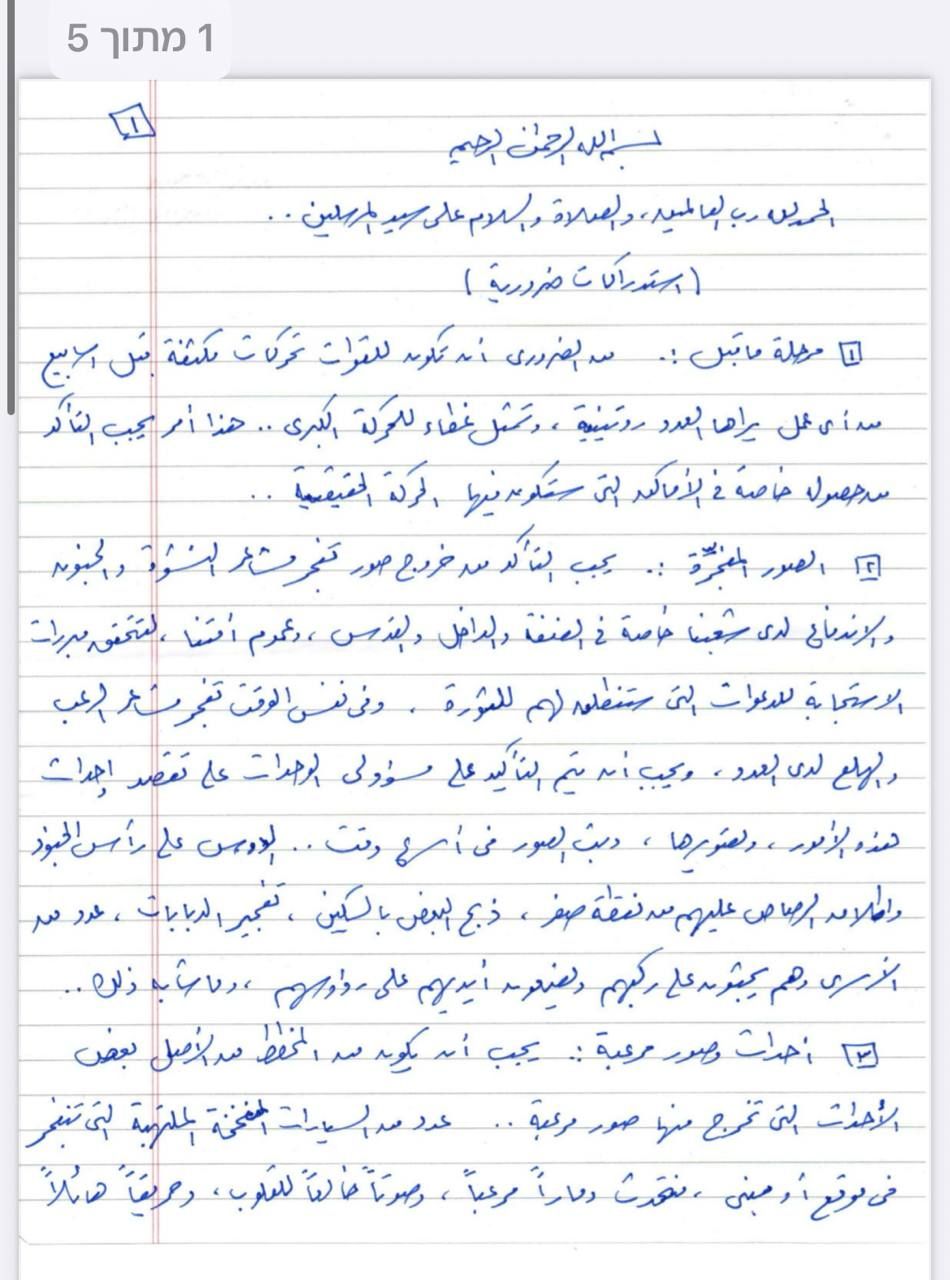 1 מתוך 5
١
بسم الله الرحمن الرحيم
الحمد لله رب العالمين، والصلاة والسلام على سيد المرسلين..
(استدراكات ضرورية)
١ مرحلة ما قبل :. من الضروري أن تكون للقوات تحركات مكثفة قبل أسابيع
من أي عمل يراها العدو روتينية، وتمثل غطاء للحركة الكبرى.. هذا أمر يجب التأكد
من حصوله خاصة في الأماكن التي ستكون فيها الحركة الحقيقية..
٢ الصور المفجّرة :. يجب التأكد من خروج صور تفجر مشاعر النشوة والجنون
والاندفاع لدى شعبنا خاصة في الضفة والداخل والقدس، وعموم أمتنا، لتتحقق مبررات
الاستجابة للدعوات التي ستنطلق لهم للثورة. وفي نفس الوقت تفجر مشاعر الرعب
والهلع لدى العدو، ويجب أن يتم التأكيد على مسؤولي الوحدات على تقصد إحداث
هذه الأمور، وتصويرها، وبث الصور في أسرع وقت.. الدوس على رأس الجنود
وإطلاق الرصاص عليهم من نقطة صفر، ذبح البعض بالسكين، تفجير الدبابات، عدد من
الأسرى وهم يجثون على ركبهم ويضعون أيديهم على رؤوسهم، وما شابه ذلك..
٣ أحداث وصور مرعبة :. يجب أن يكون من المخطط من الأصل بعض
الأحداث التي تخرج منها صور مرعبة.. عدد من السيارات المفخخة الملتهبة التي تنفجر
في موقع أو مبنى، فتحدث دماراً مرعباً، وصوتاً خالعاً للقلوب، وحريقاً هائلاً